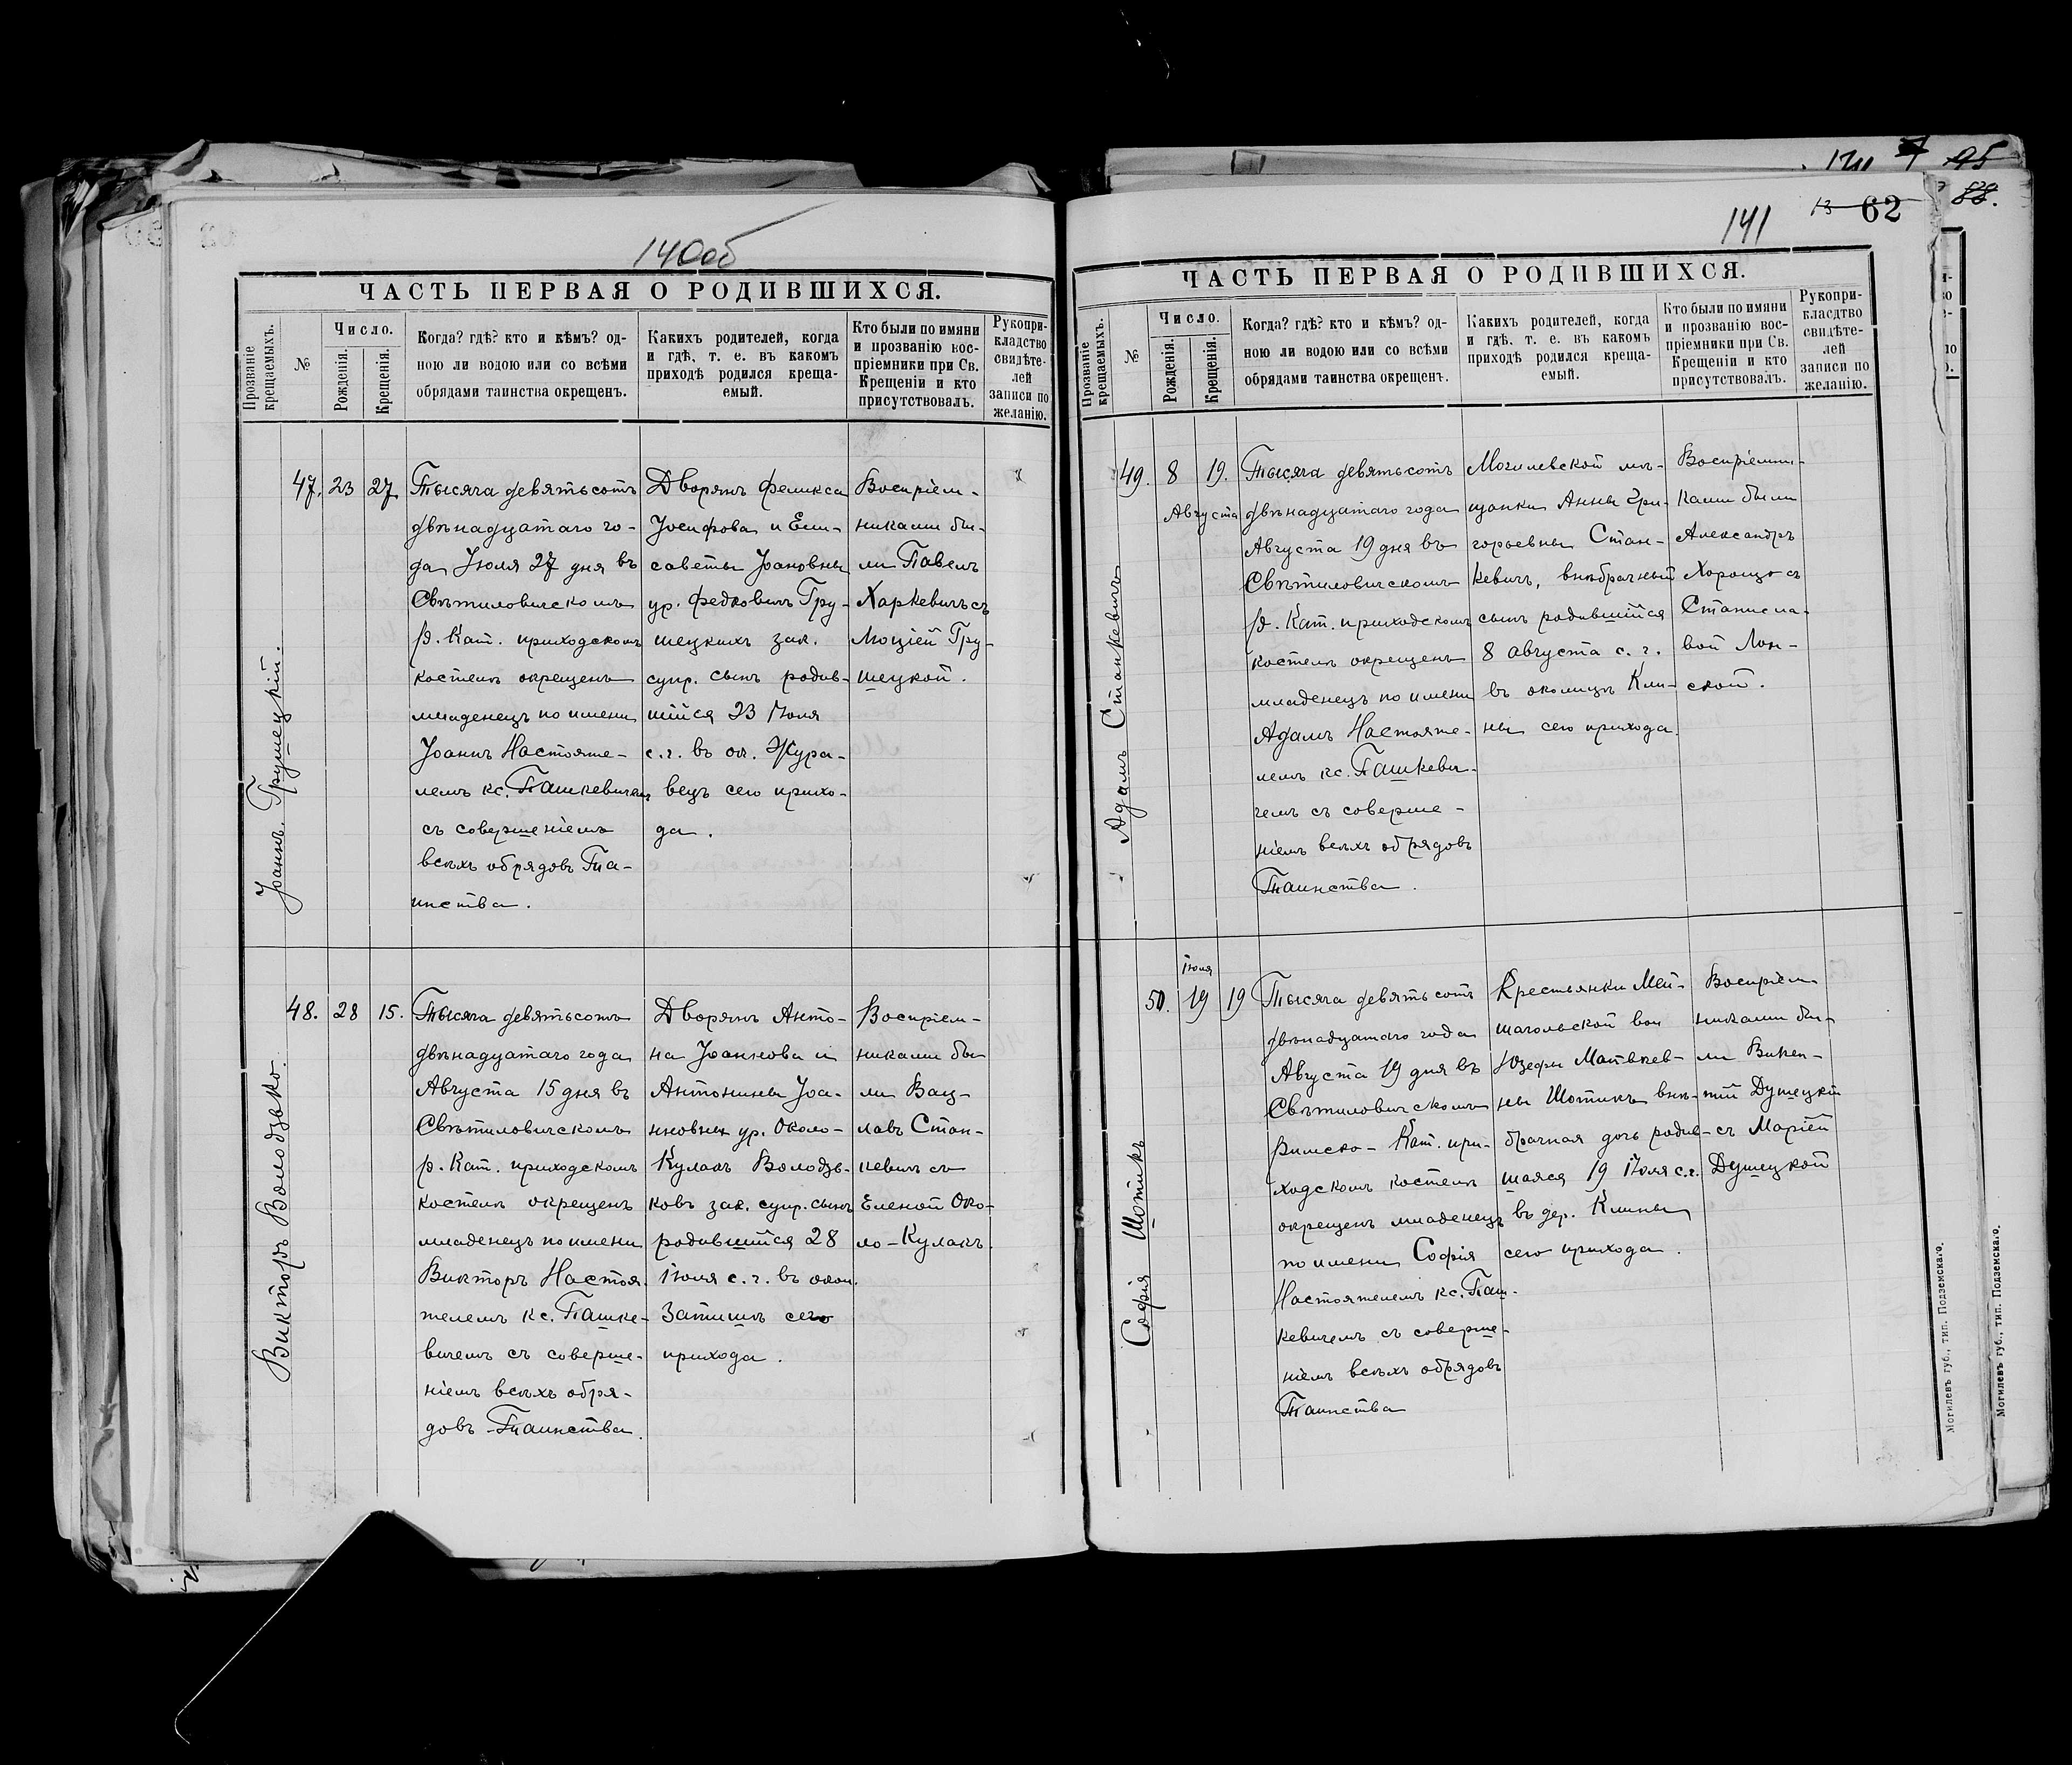 140об
ЧАСТЬ ПЕРВАЯ О РОДИВШИХСЯ.
Прозваніе крещаемыхъ.
№
Число.
Рожденія.
Крещенія.
Когда? гдѣ? кто и кѣмъ? од-
ною ли водою или со всѣми
обрядами таинства окрещенъ.
Какихъ родителей, когда
и гдѣ, т. е. въ какомъ
приходѣ родился креща-
емый.
Кто были по имяни
и прозванію вос-
пріемники при Св.
Крещеніи и кто
присутствовалъ.
Рукопри-
кладство
свидѣте-
лей
записи по
желанію.
Іоаннъ Грушецкій.
47.
23
27.
Тысяча девятьсотъ
двѣнадцатаго го-
да Іюля 27 дня въ
Свѣтиловическомъ
р. Кат. приходскомъ
костелѣ окрещенъ
младенецъ по имени
Іоаннъ Настояте-
лемъ кс. Пашкевичемъ
съ совершеніемъ
всѣхъ обрядовъ Та-
инства.
Дворянъ Феликса
Іосифова и Ели-
саветы Іоановны
ур. Федковичъ Гру-
шецкихъ зак.
супр. сынъ родив-
шійся 23 Іюля
с. г. въ ок. Жура-
вецъ сего прихо-
да.
Воспріем-
никами бы-
ли Павелъ
Харкевичъ съ
Люціей Гру-
шецкой.
Викторъ Володзько.
48.
28
15.
Тысяча девятьсотъ
двѣнадцатаго года
Августа 15 дня въ
Свѣтиловическомъ
р. Кат. приходскомъ
костелѣ окрещенъ
младенецъ по имени
Викторъ Настоя-
телемъ кс. Пашке-
вичемъ съ соверше-
ніемъ всѣхъ обря-
довъ Таинства.
Дворянъ Анто-
на Іоаннова и
Антонины Іоа-
нновны ур. Около-
Кулакъ Володзь-
ковъ зак. супр. сынъ
родившійся 28
Іюля с. г. въ окол.
Затишѣ сего
прихода.
Воспріем-
никами бы
ли Вац-
лавъ Стан-
кевичъ съ
Еленой Око-
ло-Кулакъ.
141
13
62
ЧАСТЬ ПЕРВАЯ О РОДИВШИХСЯ.
Прозваніе крещаемыхъ.
№
Число.
Рожденія.
Крещенія.
Когда? гдѣ? кто и кѣмъ? од-
ною ли водою или со всѣми
обрядами таинства окрещенъ.
Какихъ родителей, когда
и гдѣ. т. е. въ какомъ
приходѣ родился креща-
емый.
Кто были по имяни
и прозванію вос-
пріемники при Св.
Крещеніи и кто
присутствовалъ.
Рукопри-
кладство
свидѣте-
лей
записи по
желанію.
Адамъ Станкевичъ
49.
8
Августа
19.
Тысяча девятьсотъ
двѣнадцатаго года
Августа 19 дня въ
Свѣтиловическомъ
р. Кат. приходскомъ
костелѣ окрещенъ
младенецъ по имени
Адамъ Настояте-
лемъ кс. Пашкеви-
чемъ съ соверше-
ніемъ всѣхъ обрядовъ
Таинства.
Могилевской мѣ-
щанки Анны Гри-
горьевны Стан-
кевичъ, внѣбрачный
сынъ родившійся
8 августа с. г.
въ околицѣ Кли-
ны сего прихода.
Воспріемни-
ками были
Александръ
Хорощо съ
Станисла-
вой Лон-
ской.
Софія Шотикъ
50.
Іюля
19
19
Тысяча девятьсотъ
двѣнадцатаго года
Августа 19 дня въ
Свѣтиловическомъ
Римско-Кат. при-
ходскомъ костелѣ
окрещенъ младенецъ
по имени Софія
Настоятелемъ кс. Паш-
кевичемъ съ соверше-
ніемъ всѣхъ обрядовъ
Таинства
Крестьянки Мей-
шагольской вол
Юзефы Матвѣев-
ны Шотикъ внѣ-
брачная дочь родив-
шаяся 19 Іюля с. г.
въ дер. Клины
сего прихода.
Воспріем
никами бы-
ли Викен-
тій Душецкій
съ Маріей
Душецкой
Могилевъ губ., тип. Подземскаго.
95
88.
Могилевъ губ., тип. Подземскаго.